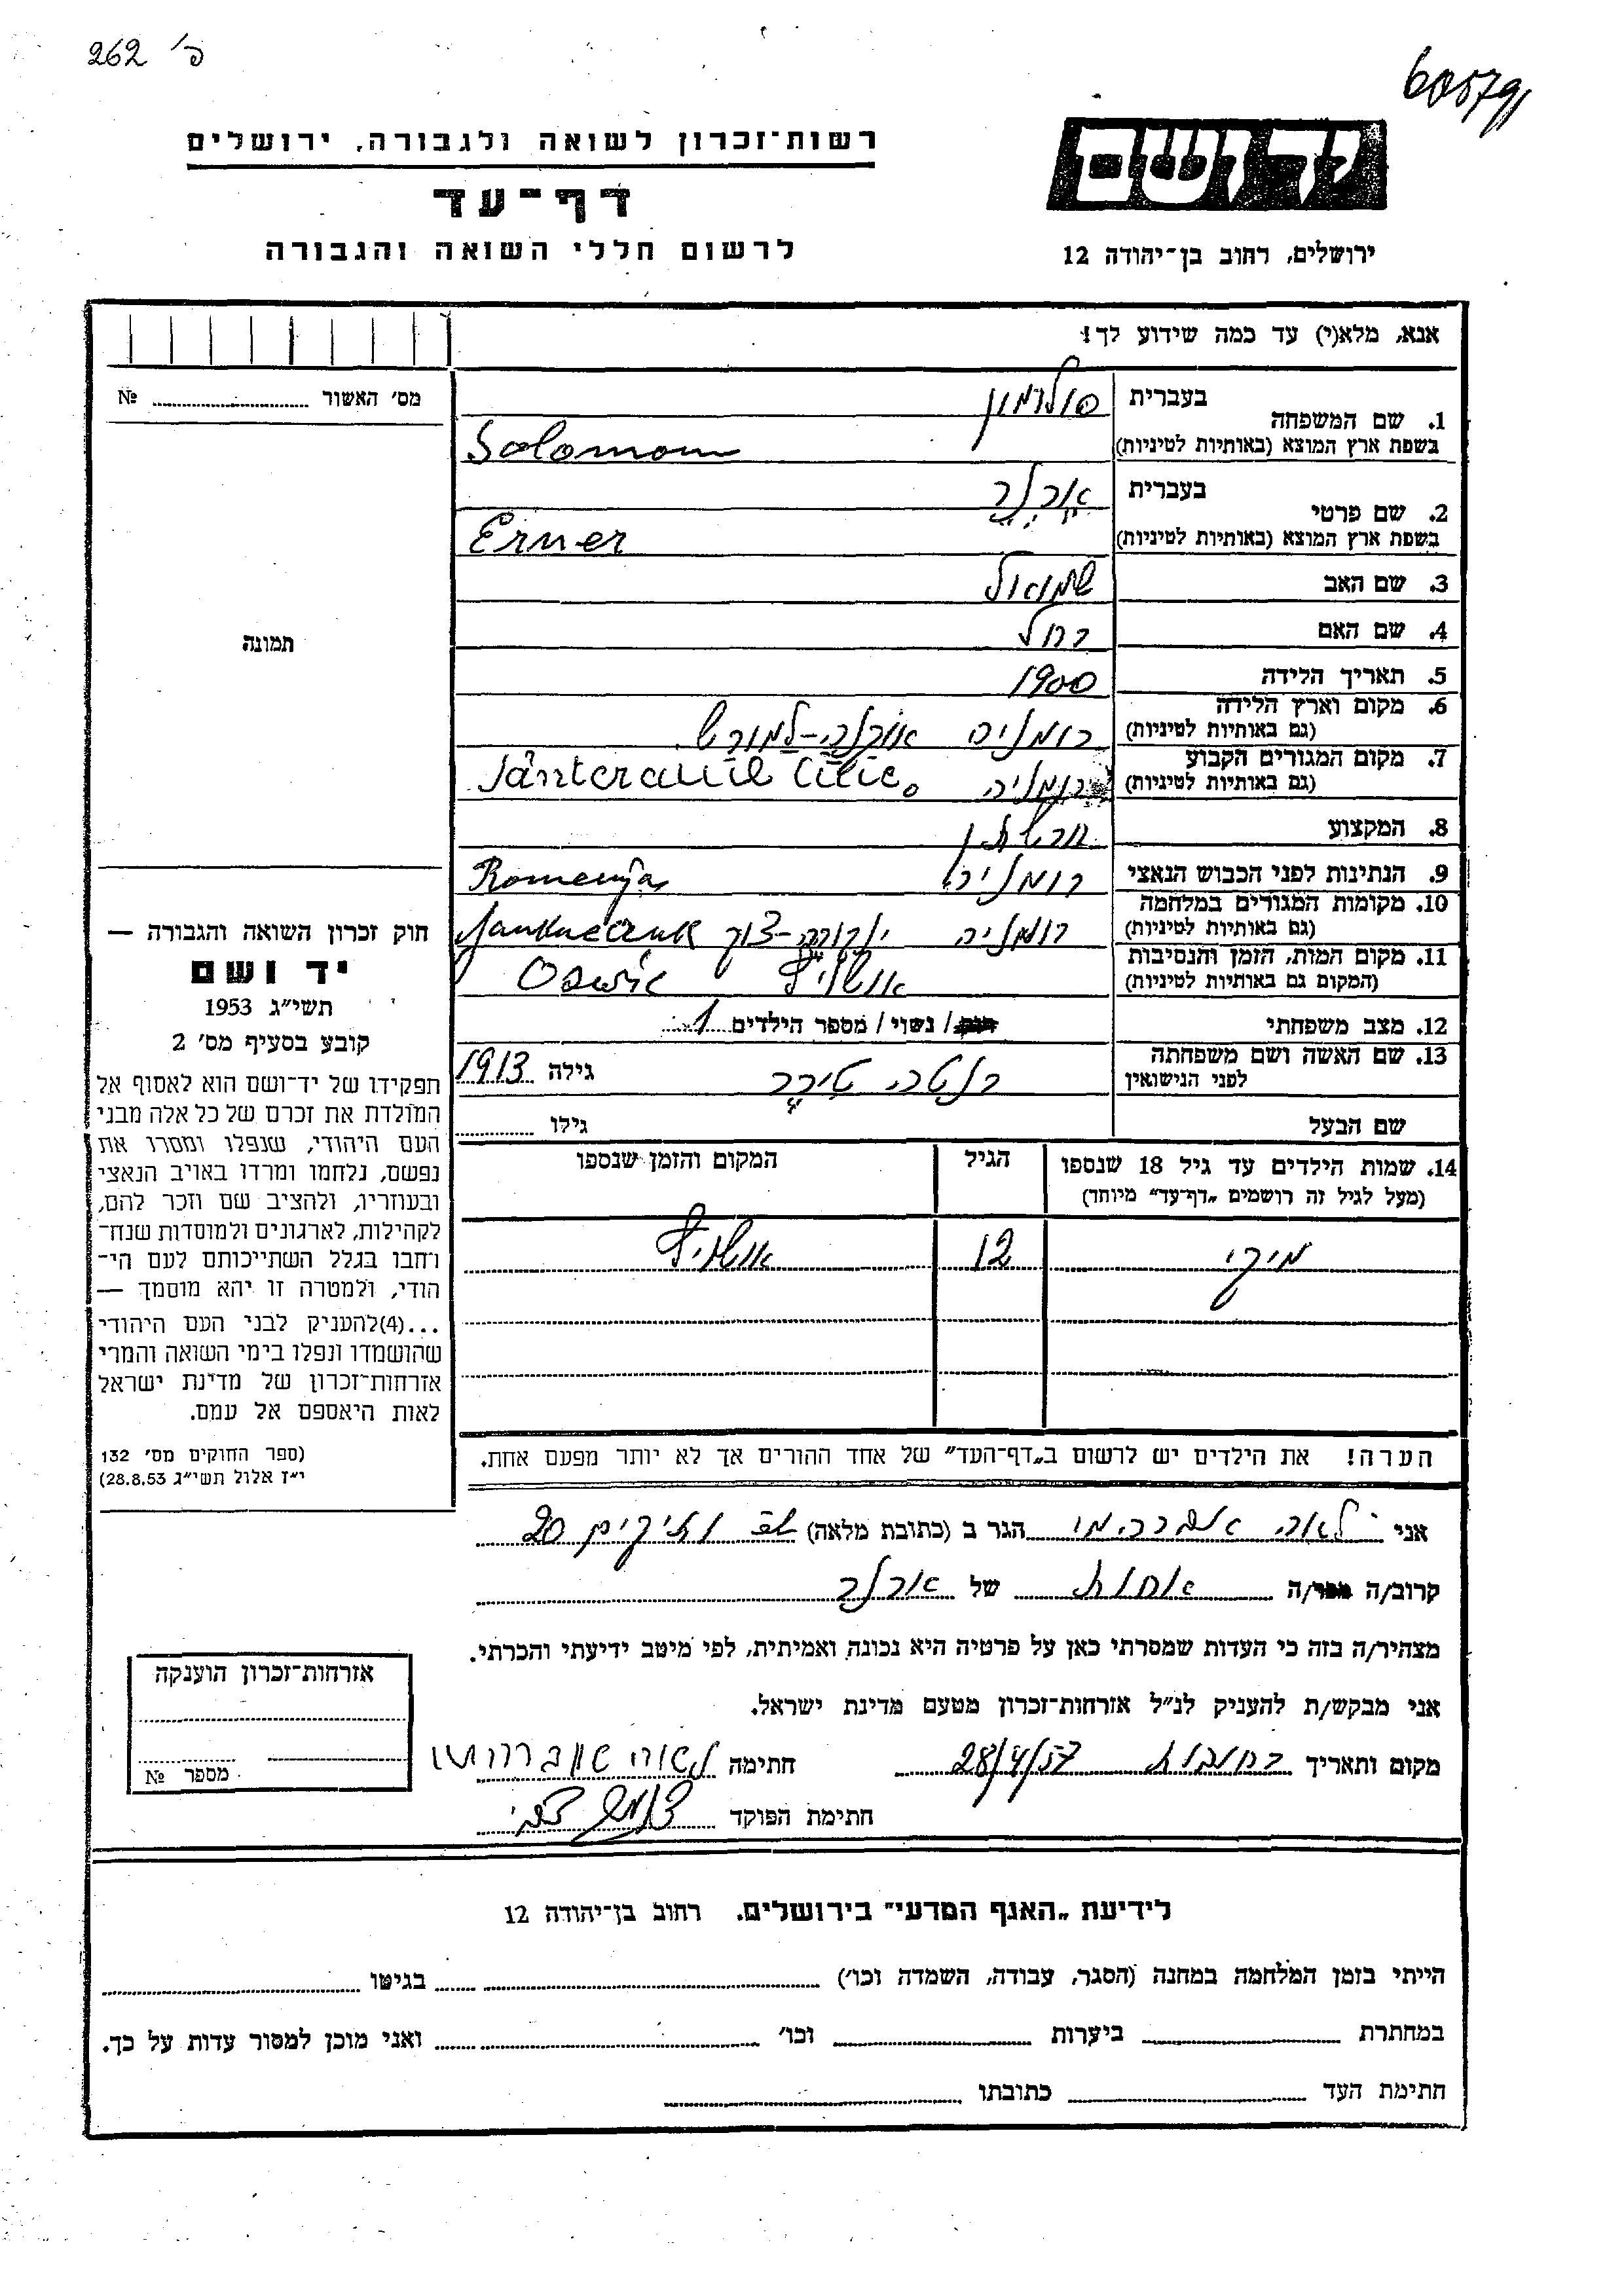 262 פ'
605791
רשות־זכרון לשואה ולגבורה, ירושלים
דף־עד
לרשום חללי השואה והגבורה
יד ושם
ירושלים, רחוב בן־יהודה 12
אנא, מלא(י) עד כמה שידוע לך!
מס' האשור № 
1. שם המשפחה בעברית סולומון
בשפת ארץ המוצא (באותיות לטיניות) Solomon
2. שם פרטי בעברית ארנר
בשפת ארץ המוצא (באותיות לטיניות) Erner
3. שם האב שמואל
4. שם האם רחל
5. תאריך הלידה 1900
6. מקום וארץ הלידה רומניה
(גם באותיות לטיניות)
7. מקום המגורים הקבוע רומניה
(גם באותיות לטיניות)
8. המקצוע
9. הנתינות לפני הכבוש הנאצי רומניה
10. מקומות המגורים במלחמה רומניה
(גם באותיות לטיניות)
11. מקום המות, הזמן והנסיבות
(המקום גם באותיות לטיניות)
12. מצב משפחתי רווק/ נשוי/ מספר הילדים 1
13. שם האשה ושם משפחתה
לפני הנישואין גילה 1913
שם הבעל גילו
14. שמות הילדים עד גיל 18 שנספו הגיל המקום והזמן שנספו
(מעל לגיל זה רושמים „דף־עד” מיוחד)
מיקי 12
תמונה
חוק זכרון השואה והגבורה —
יד ושם
תשי״ג 1953
קובע בסעיף מס' 2
תפקידו של יד־ושם הוא לאסוף אל
המולדת את זכרם של כל אלה מבני
העם היהודי, שנפלו ומסרו את
נפשם, נלחמו ומרדו באויב הנאצי
ובעוזריו, ולהציב שם וזכר להם,
לקהילות, לארגונים ולמוסדות שנח־
רחבו בגלל השתייכותם לעם הי־
הודי, ולמטרה זו יהא מוסמך —
...(4)להעניק לבני העם היהודי
שהושמדו ונפלו בימי השואה והמרי
אזרחות־זכרון של מדינת ישראל
לאות היאספם אל עמם.
(ספר החוקים מס' 132
י״ז אלול תשי״ג 28.8.53)
הערה! את הילדים יש לרשום ב„דף־העד” של אחד ההורים אך לא יותר מפעם אחת.
אני לאה אברהמי הגר ב (כתובת מלאה) ותיקים 20
קרוב/ה מכר/ה אחות של ארנר
מצהיר/ה בזה כי העדות שמסרתי כאן על פרטיה היא נכונה ואמיתית, לפי מיטב ידיעתי והכרתי.
אני מבקש/ת להעניק לנ״ל אזרחות־זכרון מטעם מדינת ישראל.
מקום ותאריך רחובות 28/4/57 חתימה לאה אברהמי
חתימת הפוקד
אזרחות־זכרון הוענקה
מספר №
לידיעת „האגף המדעי” בירושלים. רחוב בן־יהודה 12
הייתי בזמן המלחמה במחנה (הסגר, עבודה, השמדה וכו') בגיטו
במחתרת ביערות וכו' ואני מוכן למסור עדות על כך.
חתימת העד כתובתו